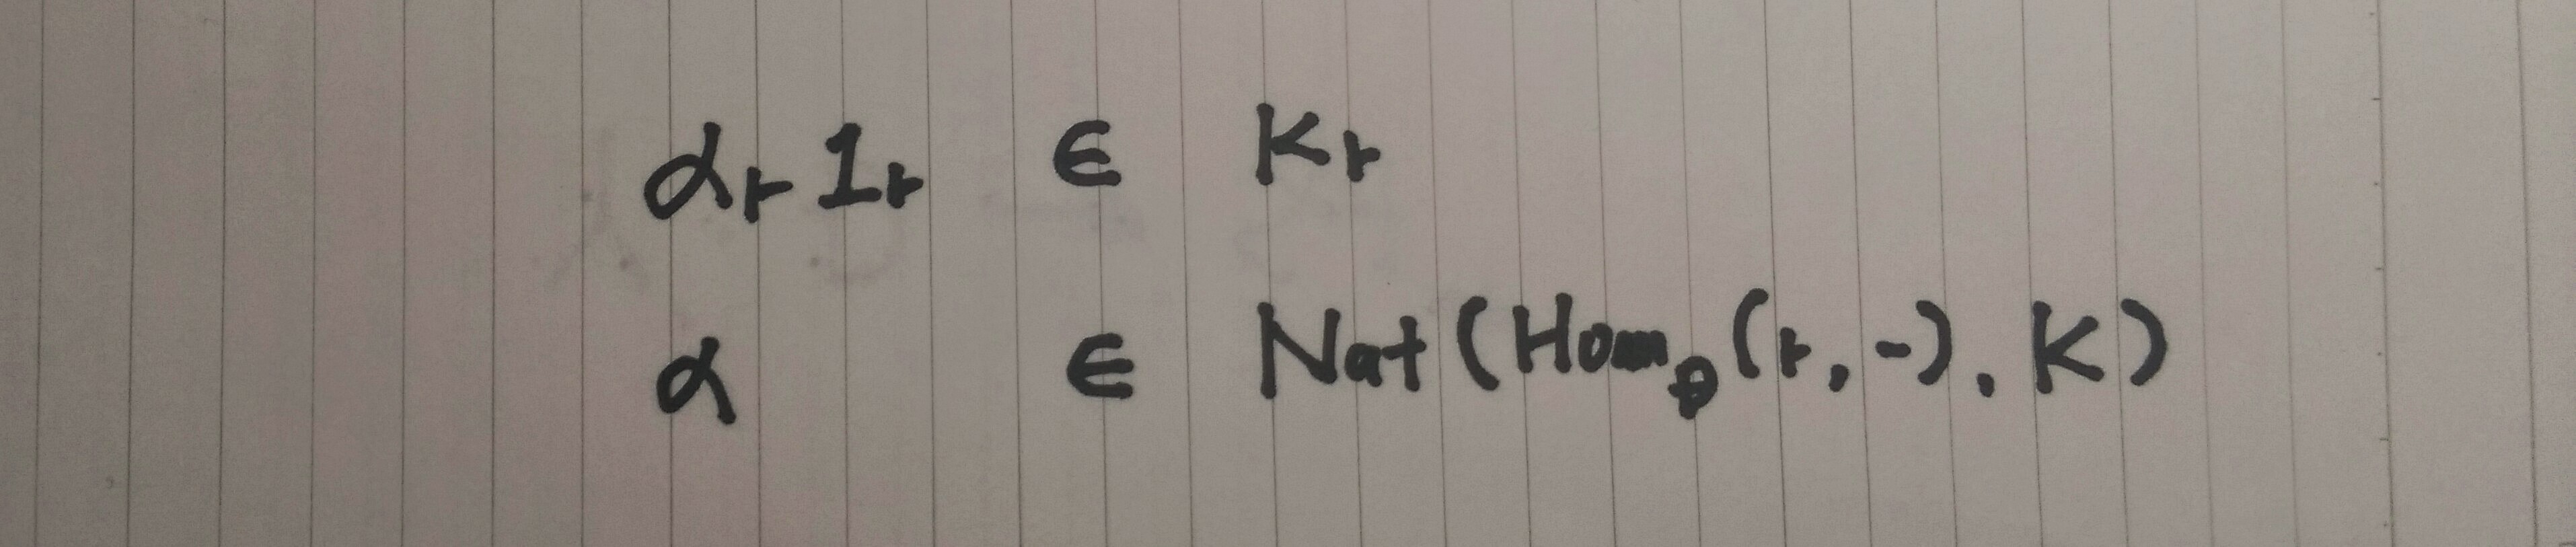 αᵣ 1ᵣ ∈ Kr
α ∈ Nat(Hom_D(r, -), K)